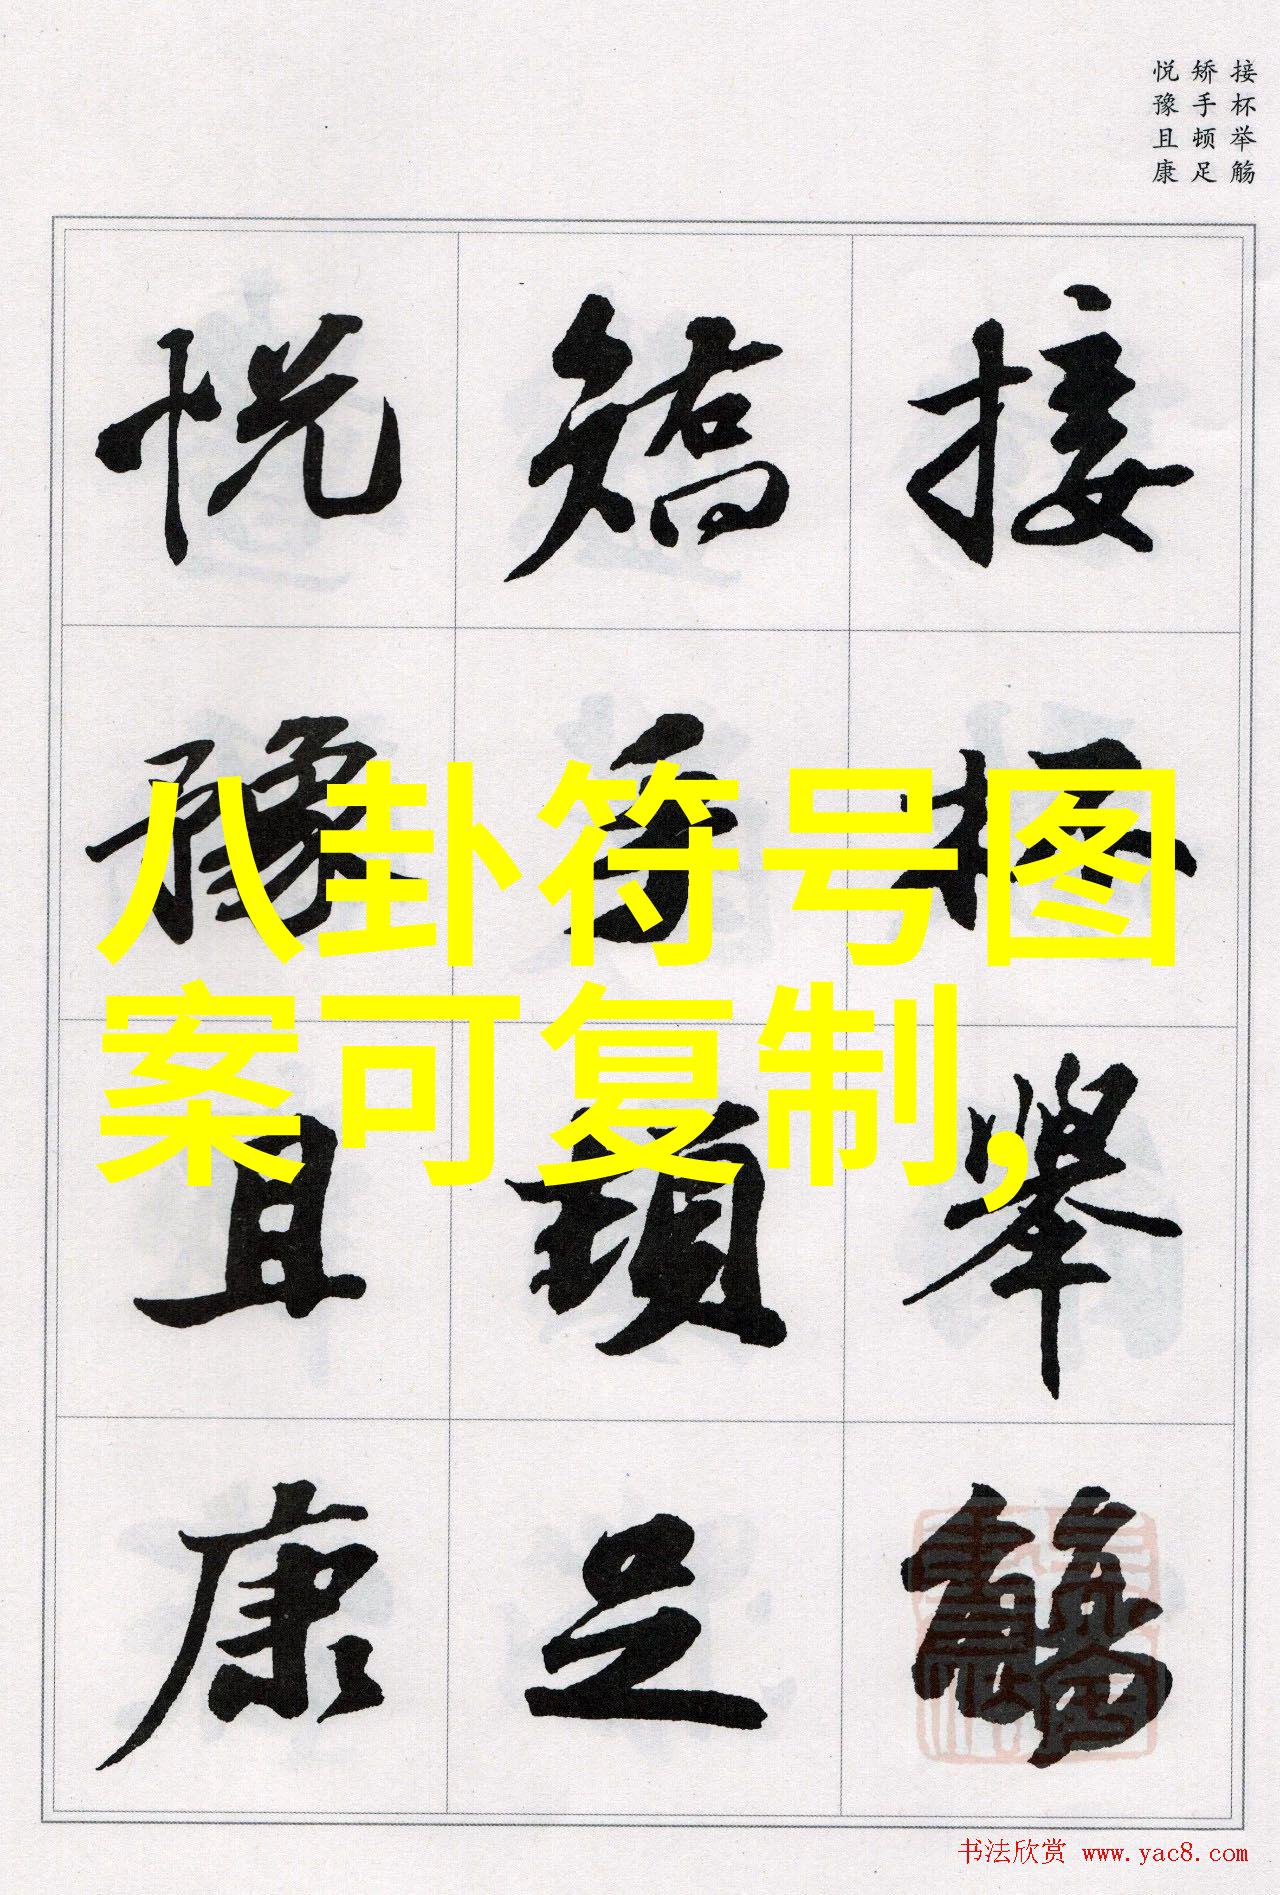 接杯举觞
矫手顿足
悦豫且康
接杯舉觴
矯手頓足
悦豫且康
八卦符号图
案可复制,
书法欣赏 www.yac8.com